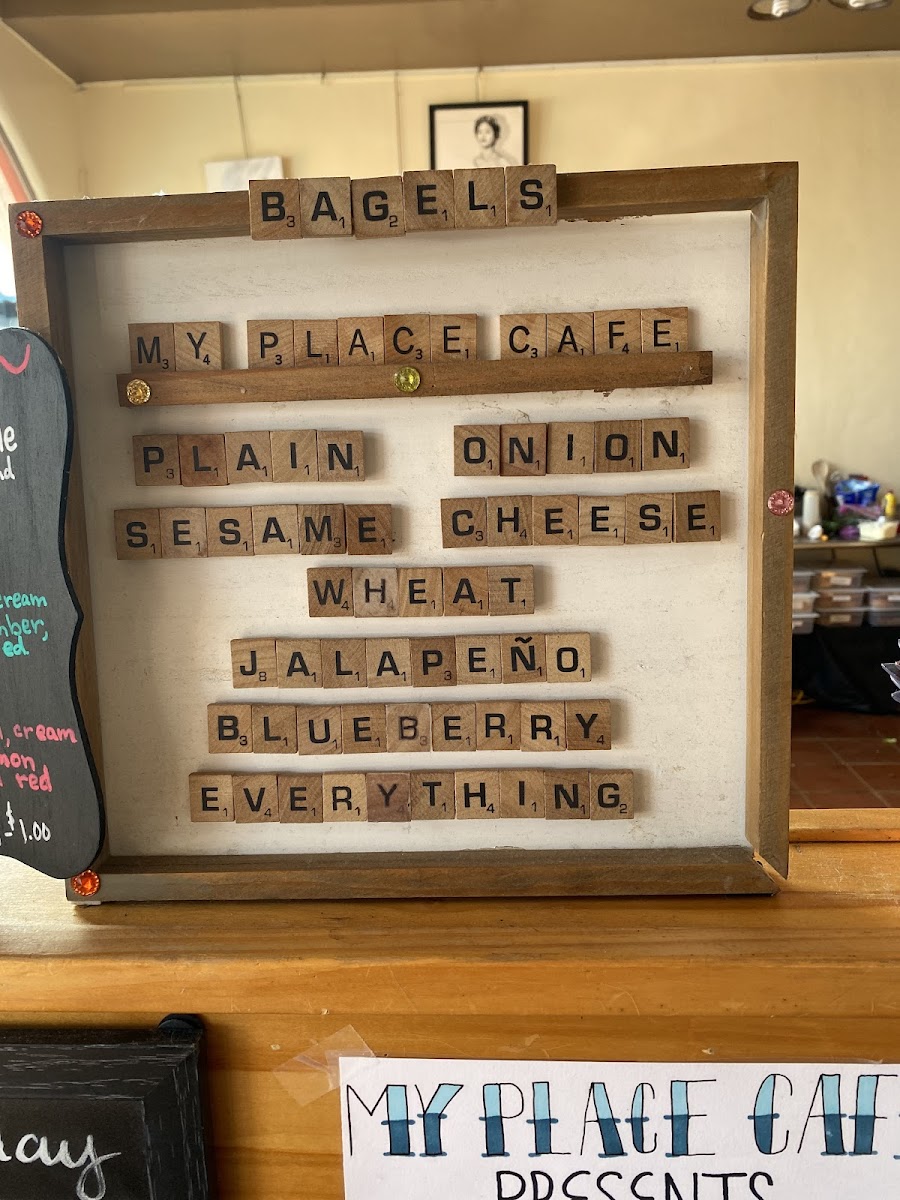 BAGELS
MY PLACE CAFE
PLAIN ONION
SESAME CHEESE
WHEAT
JALAPEÑO
BLUEBERRY
EVERYTHING
red
$1.00
MY PLACE CAFE
PRESENTS